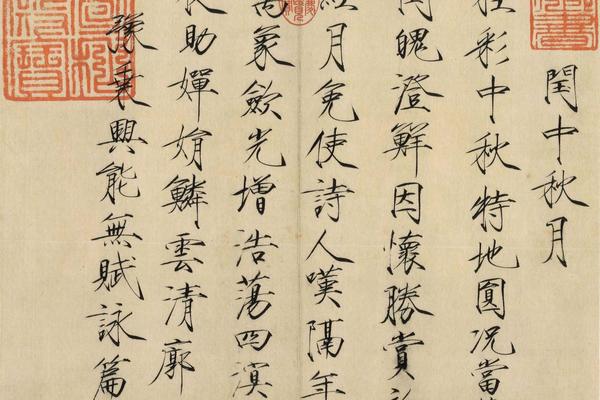 閏中秋月
桂彩中秋特地圓況當
閏魄澄鮮因懷勝賞初
經月免使詩人嘆隔年
萬象斂光增浩蕩四溟
夜助嬋娟鱗雲清廓
豫乘興能無賦詠篇